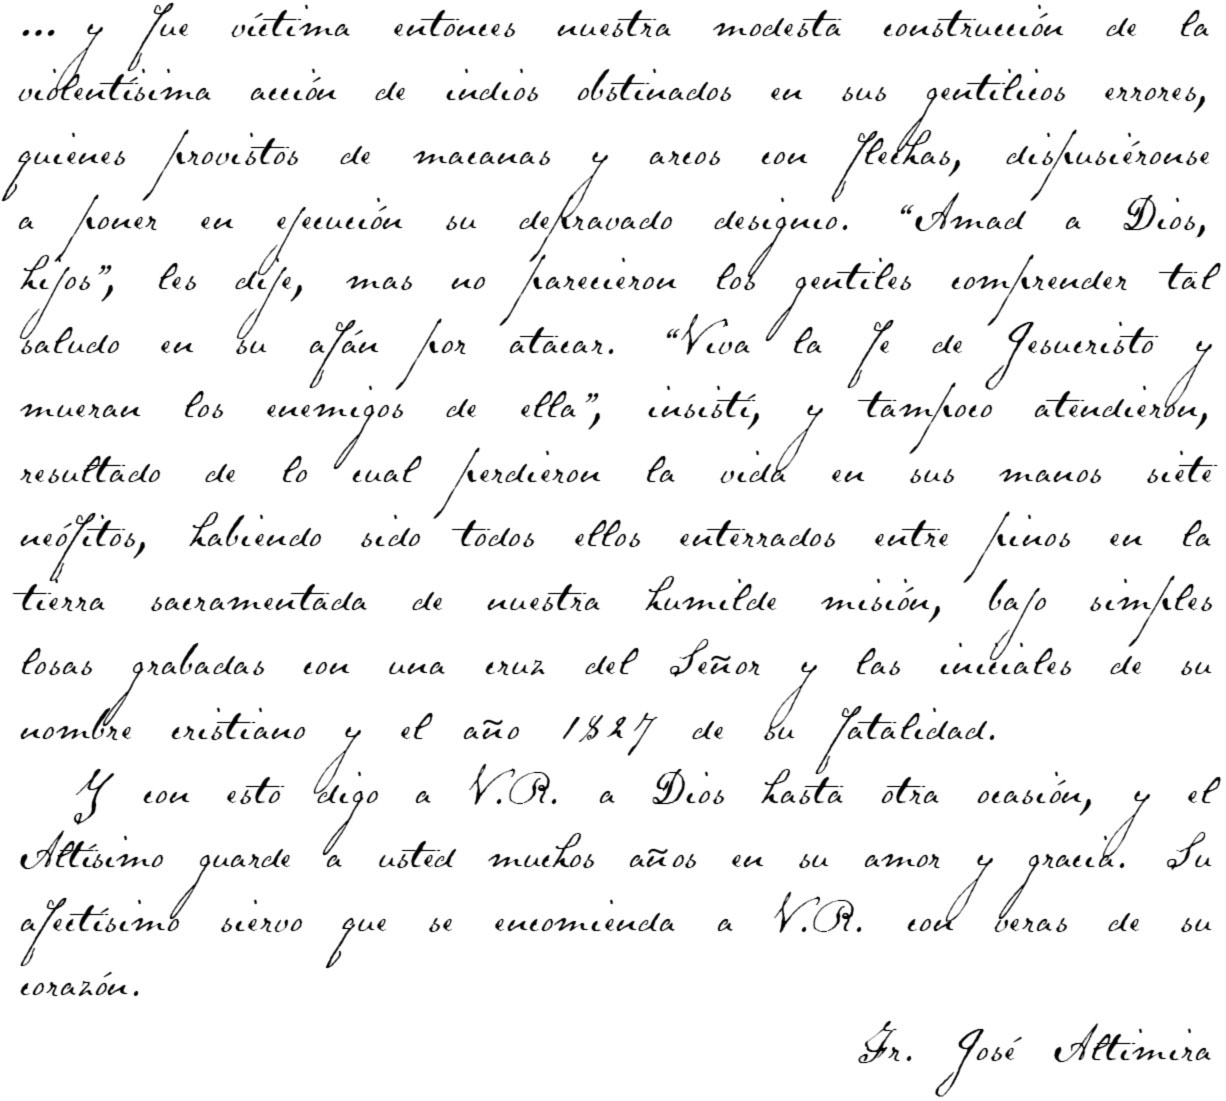 ... y fue víctima entonces nuestra modesta construcción de la
violentísima acción de indios obstinados en sus gentilicos errores,
quienes provistos de macanas y arcos con flechas, dispusiéronse
a poner en ejecución su depravado designio. “Amad a Dios,
hijos”, les dije, mas no parecieron los gentiles comprender tal
saludo en su afán por atacar. “Viva la fe de Jesucristo y
mueran los enemigos de ella”, insistí, y tampoco atendieron,
resultado de lo cual perdieron la vida en sus manos siete
neófitos, habiendo sido todos ellos enterrados entre pinos en la
tierra sacramentada de nuestra humilde misión, bajo simples
losas grabadas con una cruz del Señor y las iniciales de su
nombre cristiano y el año 1827 de su fatalidad.
Y con esto digo a V.R. a Dios hasta otra ocasión, y el
Altísimo guarde a usted muchos años en su amor y gracia. Su
afectísimo siervo que se encomienda a V.R. con veras de su
corazón.
Fr. José Altimira